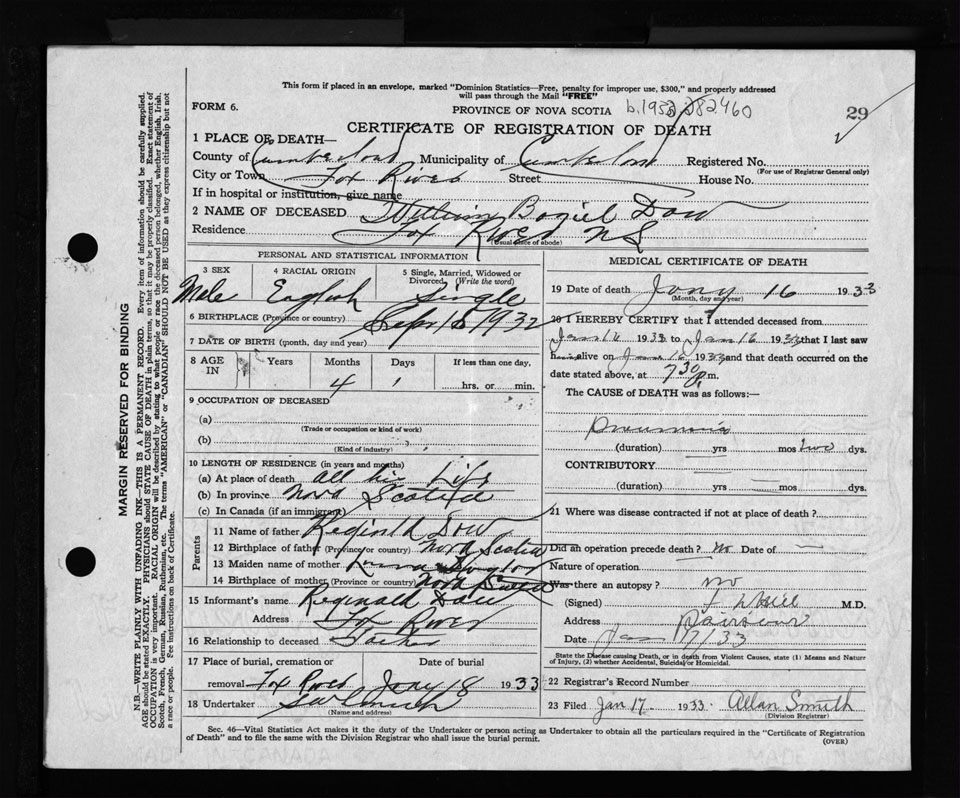 This form if placed in an envelope, marked "Dominion Statistics—Free, penalty for improper use, $300," and properly addressed
will pass through the Mail "FREE"
FORM 6. PROVINCE OF NOVA SCOTIA 29
CERTIFICATE OF REGISTRATION OF DEATH
1 PLACE OF DEATH—
County of Cumberland Municipality of Cumberland Registered No.
(For use of Registrar General only)
City or Town Fox River Street House No.
If in hospital or institution, give name
2 NAME OF DECEASED William Dow
Residence Fox River NS
(Usual place of abode)
PERSONAL AND STATISTICAL INFORMATION
3 SEX 4 RACIAL ORIGIN 5 Single, Married, Widowed or
Divorced. (Write the word)
Male English Single
6 BIRTHPLACE (Province or country) Sept 15 1932
7 DATE OF BIRTH (month, day and year)
8 AGE IN Years Months Days If less than one day,
4 1 hrs. or min.
9 OCCUPATION OF DECEASED
(a)
(Trade or occupation or kind of work)
(b)
(Kind of industry)
10 LENGTH OF RESIDENCE (in years and months)
(a) At place of death all his Life
(b) In province Nova Scotia
(c) In Canada (if an immigrant)
Parents
11 Name of father Reginald Dow
12 Birthplace of father (Province or country) Nova Scotia
13 Maiden name of mother
14 Birthplace of mother (Province or country) Nova Scotia
15 Informant's name Reginald Dow
Address Fox River
16 Relationship to deceased Father
17 Place of burial, cremation or Date of burial
removal Fox River Jany 18 1933
18 Undertaker
(Name and address)
MEDICAL CERTIFICATE OF DEATH
19 Date of death Jany 16 1933
(Month, day and year)
20 I HEREBY CERTIFY that I attended deceased from
Jan 16 1933 to Jan 16 1933 that I last saw
h alive on Jan 16 1933 and that death occurred on the
date stated above, at 7 30 P.m.
The CAUSE of DEATH was as follows:—
Pneumonia
(duration) yrs mos two dys.
CONTRIBUTORY
(duration) yrs mos dys.
21 Where was disease contracted if not at place of death?
Did an operation precede death? no Date of —
Nature of operation
Was there an autopsy? no
(Signed) M.D.
Address
Date Jan 17/33
State the Disease causing Death, or in death from Violent Causes, state (1) Means and Nature
of Injury, (2) whether Accidental, Suicidal or Homicidal.
22 Registrar's Record Number
23 Filed Jan 17 1933 Allan Smith
(Division Registrar)
Sec. 46—Vital Statistics Act makes it the duty of the Undertaker or person acting as Undertaker to obtain all the particulars required in the "Certificate of Registration
of Death" and to file the same with the Division Registrar who shall issue the burial permit. (OVER)
MARGIN RESERVED FOR BINDING
N.B.—WRITE PLAINLY WITH UNFADING INK—THIS IS A PERMANENT RECORD. Every item of information should be carefully supplied.
AGE should be stated EXACTLY. PHYSICIANS should STATE CAUSE OF DEATH in plain terms, so that it may be properly classified. Exact statement of
OCCUPATION is very important. RACIAL ORIGIN will be described by stating to what people or race the deceased person belonged, whether English, Irish,
Scotch, French, German, Russian, Ruthenian, etc. The terms "AMERICAN" or "CANADIAN" SHOULD NOT BE USED as they express citizenship but not
a race or people. See instructions on back of Certificate.